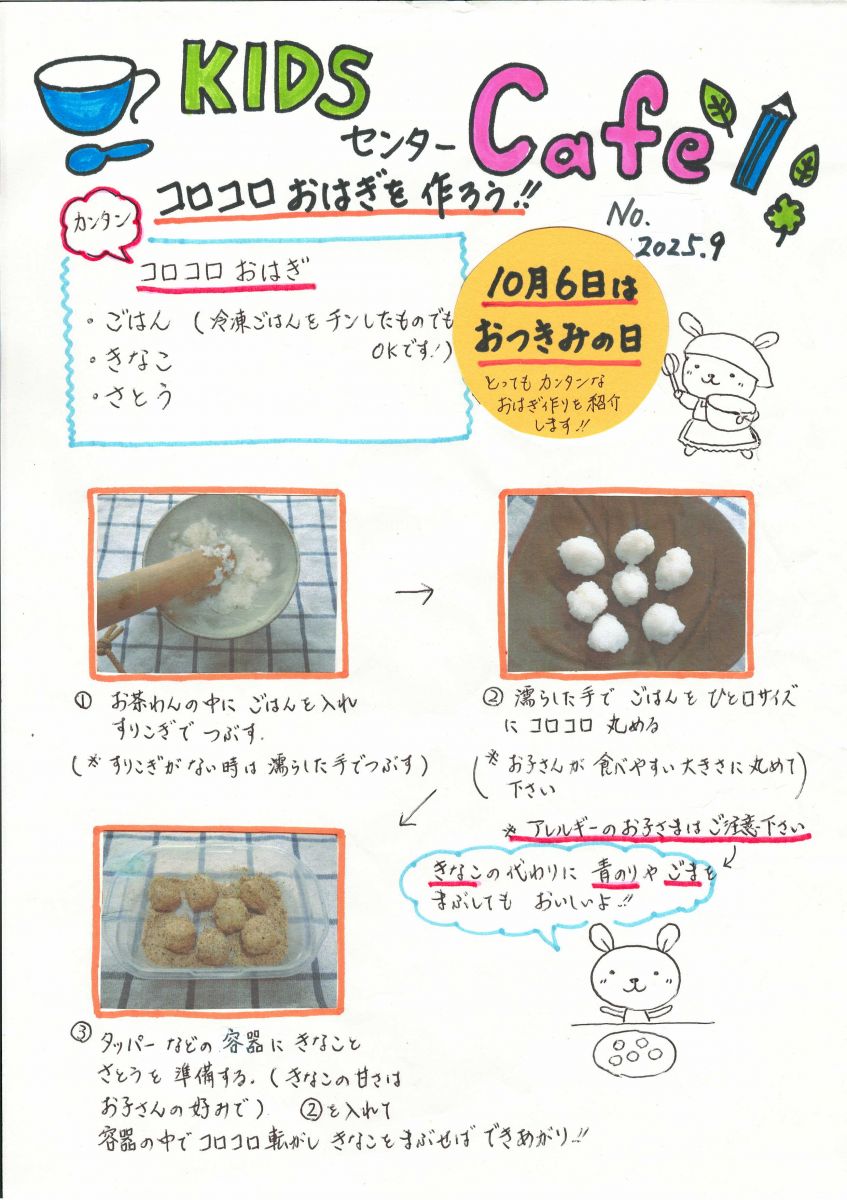 KIDS
センター Cafe
コロコロ おはぎを 作ろう!!
カンタン
No.
2025.9
コロコロ おはぎ
・ごはん (冷凍ごはんを チンしたものでも
OKです!)
・きなこ
・さとう
10月6日は
おつきみの日
とっても カンタンな
おはぎ作りを紹介
します!!
→
① お茶わんの中に ごはんを入れ
すりこぎで つぶす.
(※ すりこぎが ない時は 濡らした手でつぶす)
② 濡らした手で ごはんを ひと口サイズ
に コロコロ 丸める
(※ お子さんが 食べやすい大きさに丸めて
下さい)
※ アレルギーのお子さまは ご注意下さい
きなこの代わりに 青のりや ごまを
まぶしても おいしいよ!!
③ タッパー などの 容器に きなこと
さとうを 準備する. (きなこの甘さは
お子さんの好みで) ②を入れて
容器の中でコロコロ転がし きなこをまぶせば できあがり!!